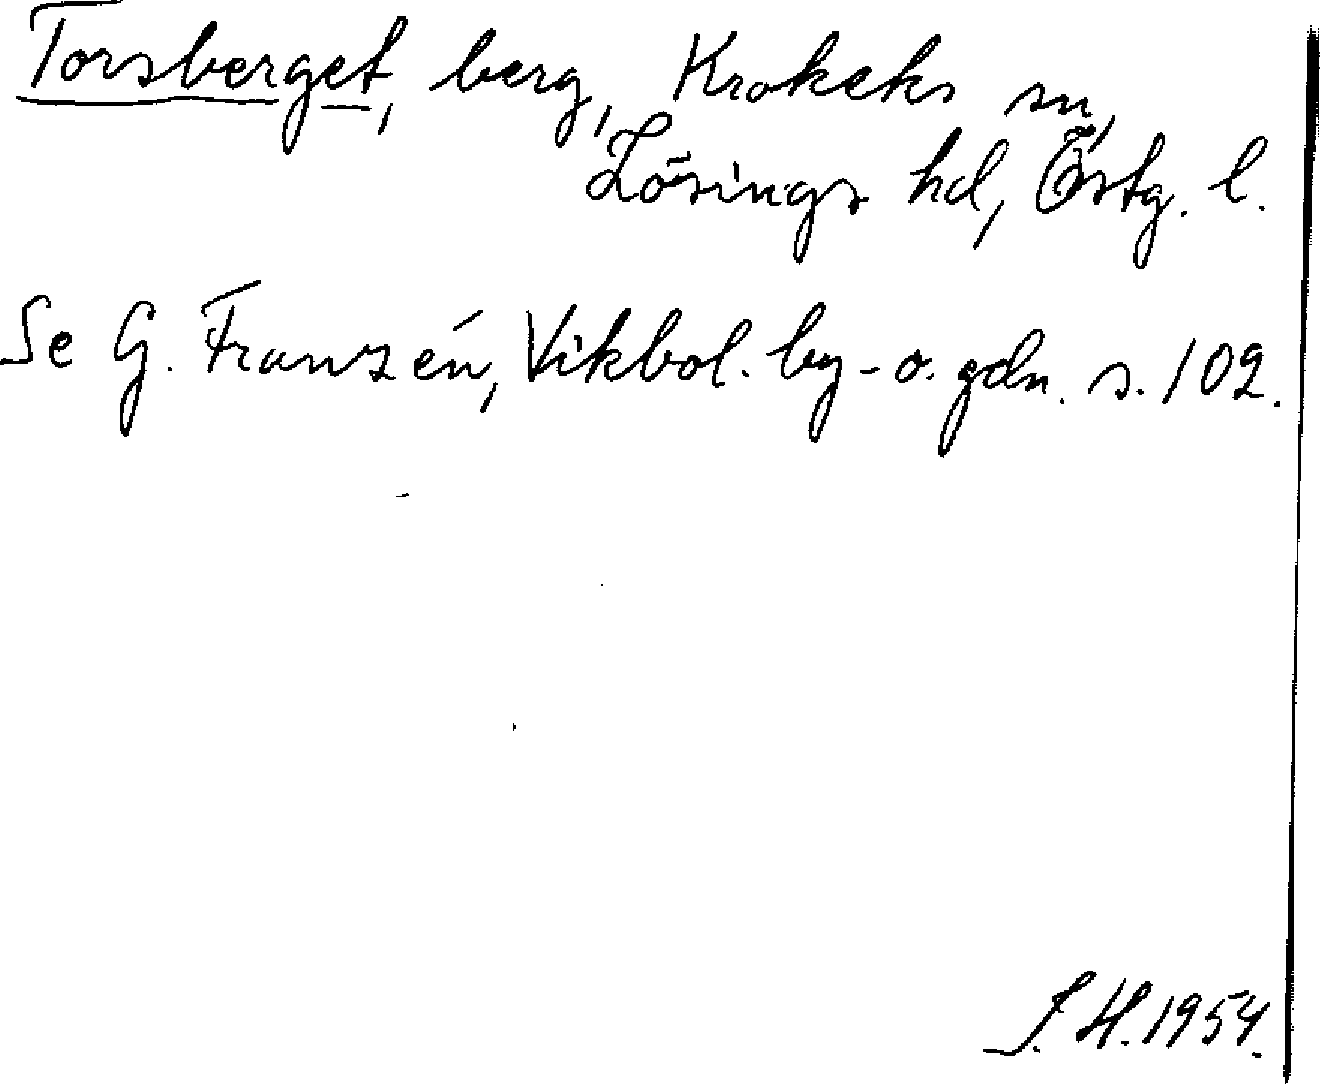 Torsberget, berg, Krokeks sn,
Lösings hd, Östg. l.
Se G. Franzén, Vikbol. by- o. gdn. s. 102.
S. H. 1954.